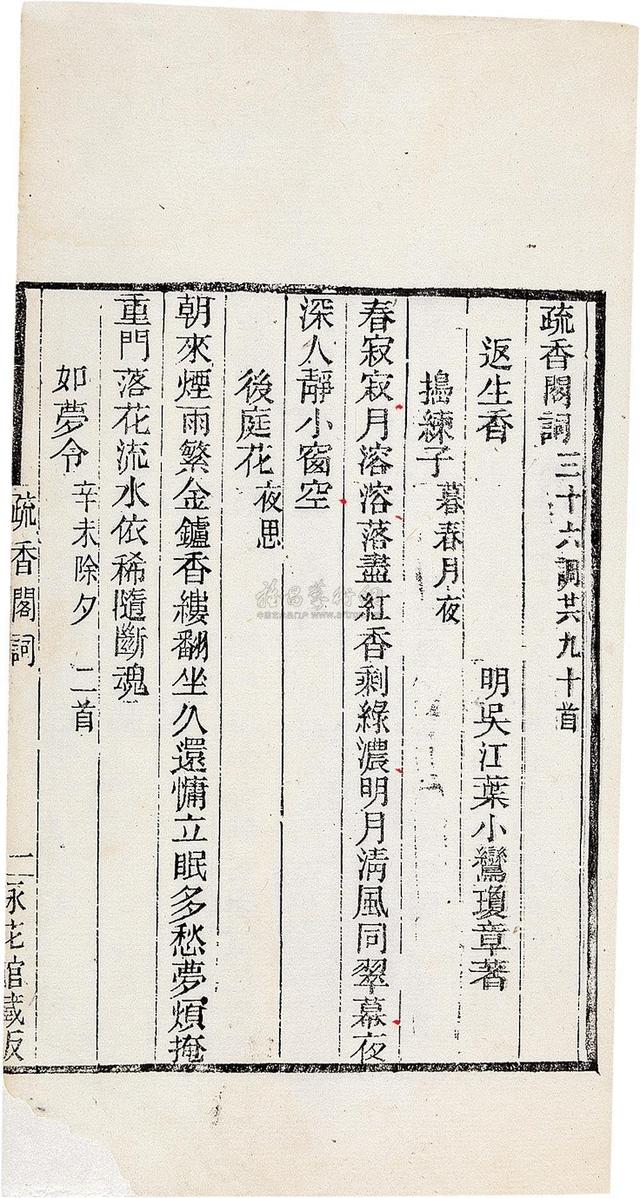 疏香閣詞三十六調共九十首
返生香 明吳江葉小鸞瓊章著
搗練子暮春月夜
春寂寂月溶溶落盡紅香剩綠濃明月清風同翠幕夜
深人靜小窗空
後庭花夜思
朝來煙雨繁金鑪香縷翻坐久還慵立眠多愁夢煩掩
重門落花流水依稀隨斷魂
如夢令辛未除夕 二首
疏香閣詞 二 詠花館藏版